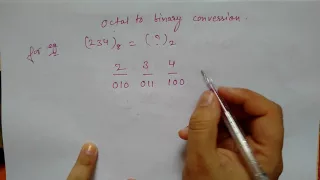 octal to binary conversion.
for eg (234)8 = (?)2
2 3 4
010 011 100